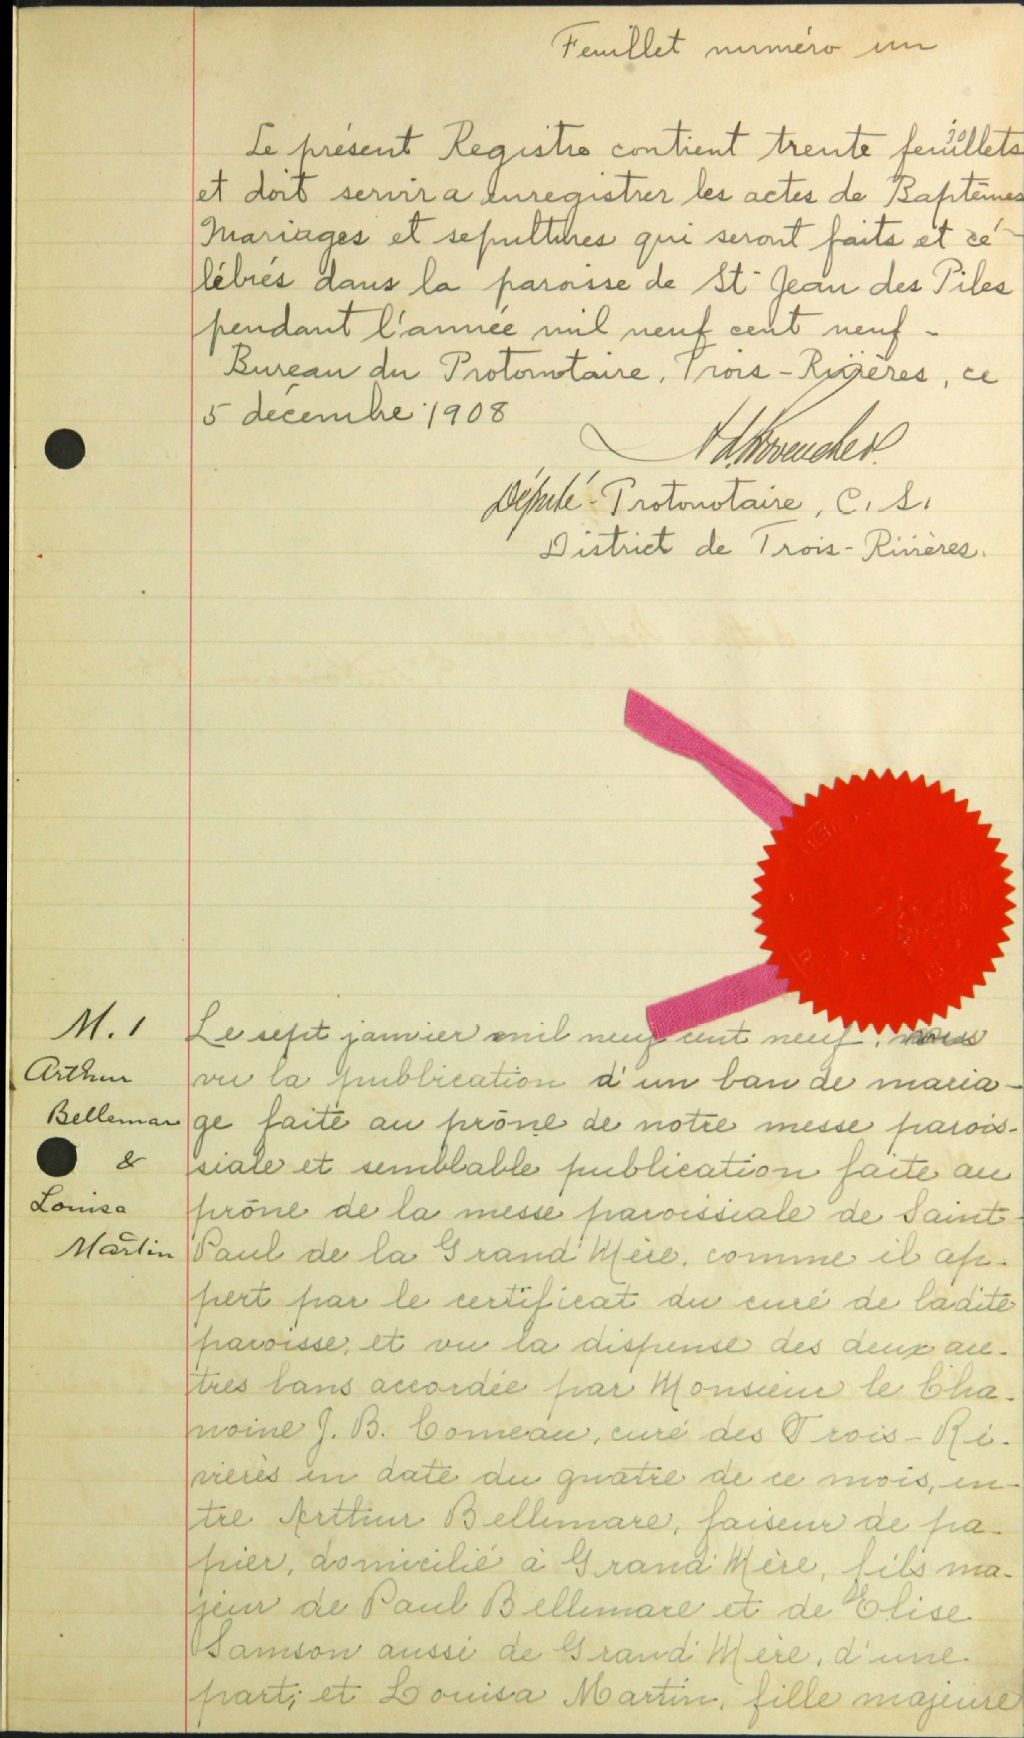 Feuillet numéro un
30
Le présent Registre contient trente feuillets
et doit servir a enregistrer les actes de Baptêmes
Mariages et sepultures qui seront faits et cé-
lébrés dans la paroisse de St Jean des Piles
pendant l'année mil neuf cent neuf -
Bureau du Protonotaire, Trois-Rivières, ce
5 décembre 1908
Député-Protonotaire, C. S.
District de Trois-Rivières.
M. 1
Arthur
Bellemare
&
Louisa
Martin
Le sept janvier mil neuf cent neuf,
vu la publication d'un ban de maria-
ge faite au prône de notre messe parois-
siale et semblable publication faite au
prône de la messe paroissiale de Saint-
Paul de la Grand'Mère, comme il ap-
pert par le certificat du curé de ladite
paroisse, et vu la dispense des deux au-
tres bans accordée par Monsieur le Cha-
noine J. B. Comeau, curé des Trois-Ri-
vières en date du quatre de ce mois, en-
tre Arthur Bellemare, faiseur de pa-
pier, domicilié à Grand'Mère, fils ma-
jeur de Paul Bellemare et de Elise
Samson aussi de Grand'Mère, d'une
part; et Louisa Martin, fille majeure